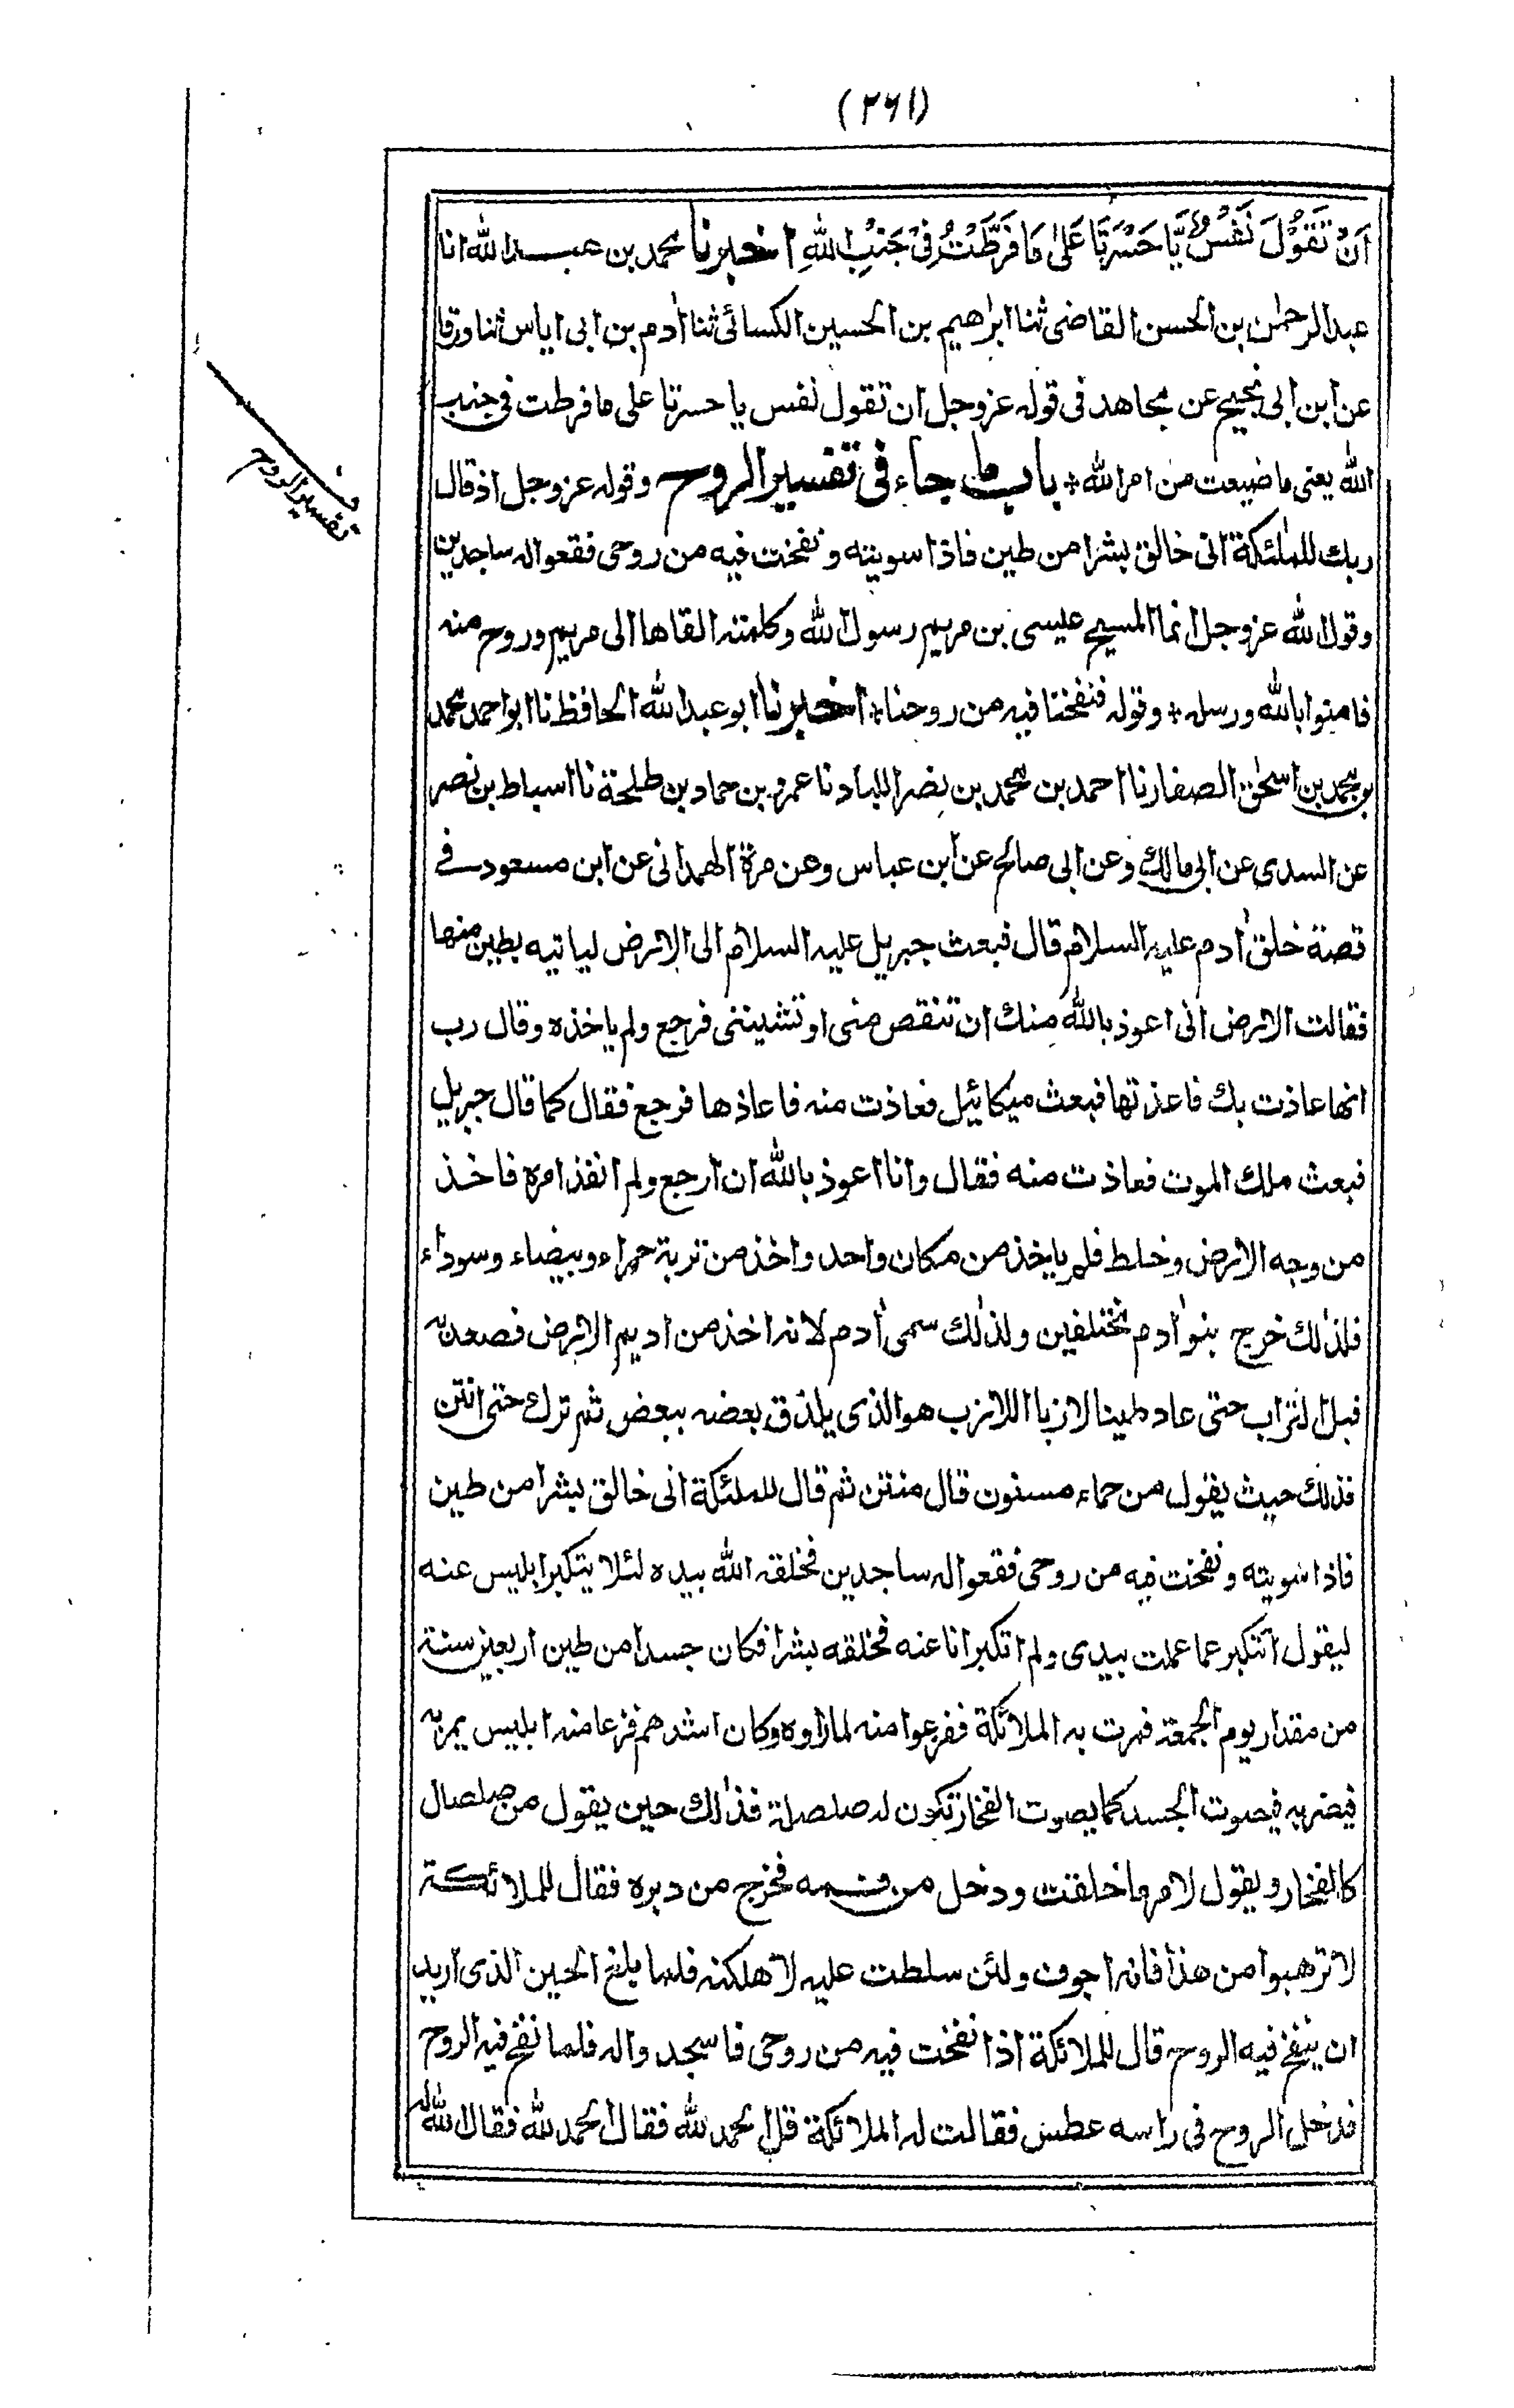 (٢٦١)
اَنْ تَقُوْلَ نَفْسٌ يَّا حَسْرَتَا عَلٰى مَا فَرَّطْتُ فِىْ جَنْبِ اللهِ اخبرنا محمد بن عبد الله انا
عبد الرحمٰن بن الحسن القاضى ثنا ابراهيم بن الحسين الكسائى ثنا اٰدم بن ابى اياس ثنا ورقا
عن ابن ابى نجيح عن مجاهد فى قوله عز وجل ان تقول نفس يا حسرتا على ما فرطت فى جنب
الله يعنى ما ضيعت من امر الله * باب ما جاء فى تفسير الروح وقوله عز وجل اذ قال
ربك للملٰئكة انى خالق بشرا من طين فاذا سويته ونفخت فيه من روحى فقعوا له ساجدين
وقول الله عز وجل انما المسيح عليسى بن مريم رسول الله وكلمته القاها الى مريم وروح منه
فامنوا بالله ورسله * وقوله فنفخنا فيه من روحنا * اخبرنا ابو عبد الله الحافظ نا ابو احمد محمد
بن محمد بن اسحٰق الصفار نا احمد بن محمد بن نصر اللباد نا عمرو بن حماد بن طلحة نا اسباط بن نصر
عن السدى عن ابى مالك وعن ابى صالح عن ابن عباس وعن مرة الهمدانى عن ابن مسعود فى
قصة خلق اٰدم عليه السلام قال فبعث جبريل عليه السلام الى الارض لياتيه بطين منها
فقالت الارض انى اعوذ بالله منك ان تنقص منى او تشيننى فرجع ولم ياخذه وقال رب
انها عاذت بك فاعذتها فبعث ميكائيل فعاذت منه فاعاذها فرجع فقال كما قال جبريل
فبعث ملك الموت فعاذت منه فقال وانا اعوذ بالله ان ارجع ولم انفذ امره فاخذ
من وجه الارض وخلط فلم ياخذ من مكان واحد واخذ من تربة حمراء وبيضاء وسوداء
فلذٰلك خرج بنو اٰدم مختلفين ولذٰلك سمى اٰدم لانه اخذ من اديم الارض فصعد به
فبل التراب حتى عاد طينا لازبا اللازب هو الذى يلزق بعضه ببعض ثم ترك حتى انتن
فذلك حيث يقول من حماء مسنون قال منتن ثم قال للملٰئكة انى خالق بشرا من طين
فاذا سويته ونفخت فيه من روحى فقعوا له ساجدين فخلقه الله بيده لئلا يتكبر ابليس عنه
ليقول اتتكبر عما عملت بيدى ولم اتكبر انا عنه فخلقه بشرا فكان جسدا من طين اربعين سنة
من مقدار يوم الجمعة فمرت به الملائكة ففزعوا منه لما راوه وكان اشدهم فزعا منه ابليس يمر به
فيضربه فيصوت الجسد كما يصوت الفخار تكون له صلصلة فذٰلك حين يقول من صلصال
كالفخار ويقول لامر ما خلقت ودخل من فمه فخرج من دبره فقال للملائكة
لا ترهبوا من هذا فانه اجوف ولئن سلطت عليه لاهلكنه فلما بلغ الحين الذى اريد
ان ينفخ فيه الروح قال للملائكة اذا نفخت فيه من روحى فاسجدوا له فلما نفخ فيه الروح
فدخل الروح فى راسه عطس فقالت له الملائكة قل الحمد لله فقال الحمد لله فقال الله له
تفسير الروح